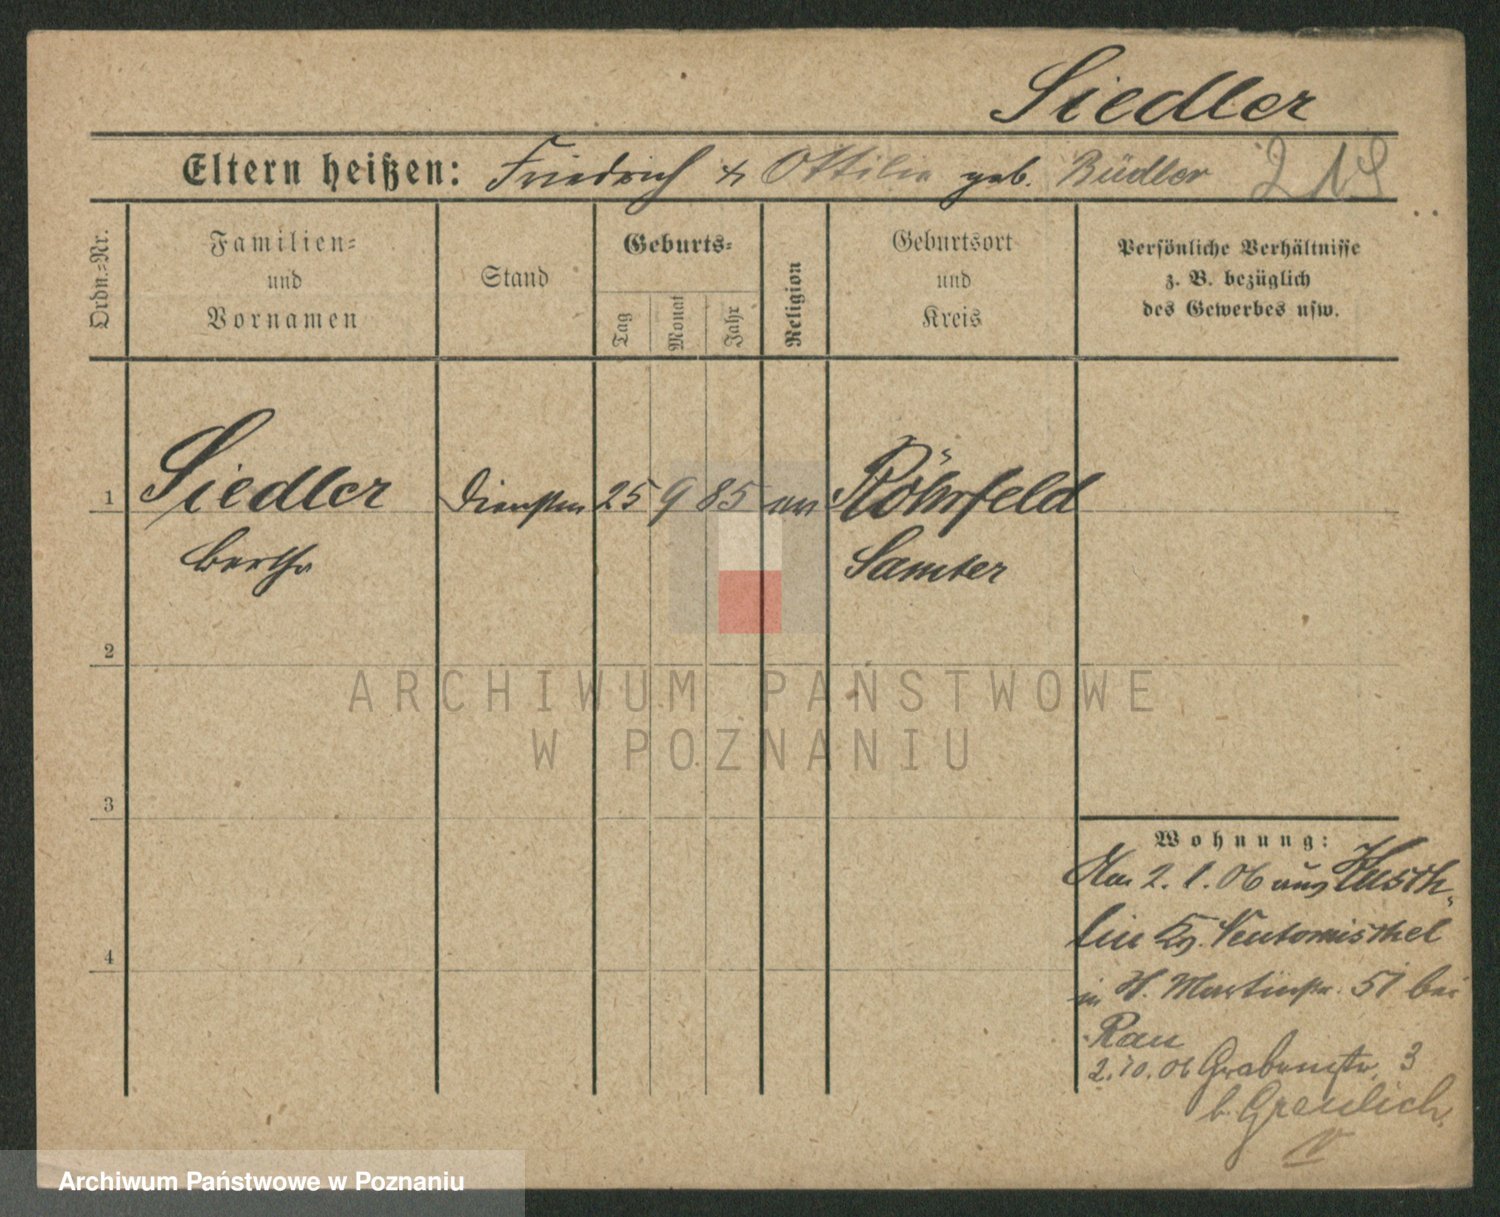 Siedler
Eltern heißen: Friedrich & Ottilie geb. Büdler 219
Ordn.=Nr.
Familien=
und
Vornamen
Stand
Geburts=
Tag
Monat
Jahr
Religion
Geburtsort
und
Kreis
Persönliche Verhältnisse
z. B. bezüglich
des Gewerbes usw.
1 Siedler 25 9 85 ev Röhrfeld
Bertha Samter
2
ARCHIWUM PAŃSTWOWE
W POZNANIU
3
Wohnung:
2. 1. 06 aus
Neutomischel
in St. Martinstr. 51 bei
Rau
2.10.06 Grabenstr. 3
b. Greulich
4
IV
Archiwum Państwowe w Poznaniu